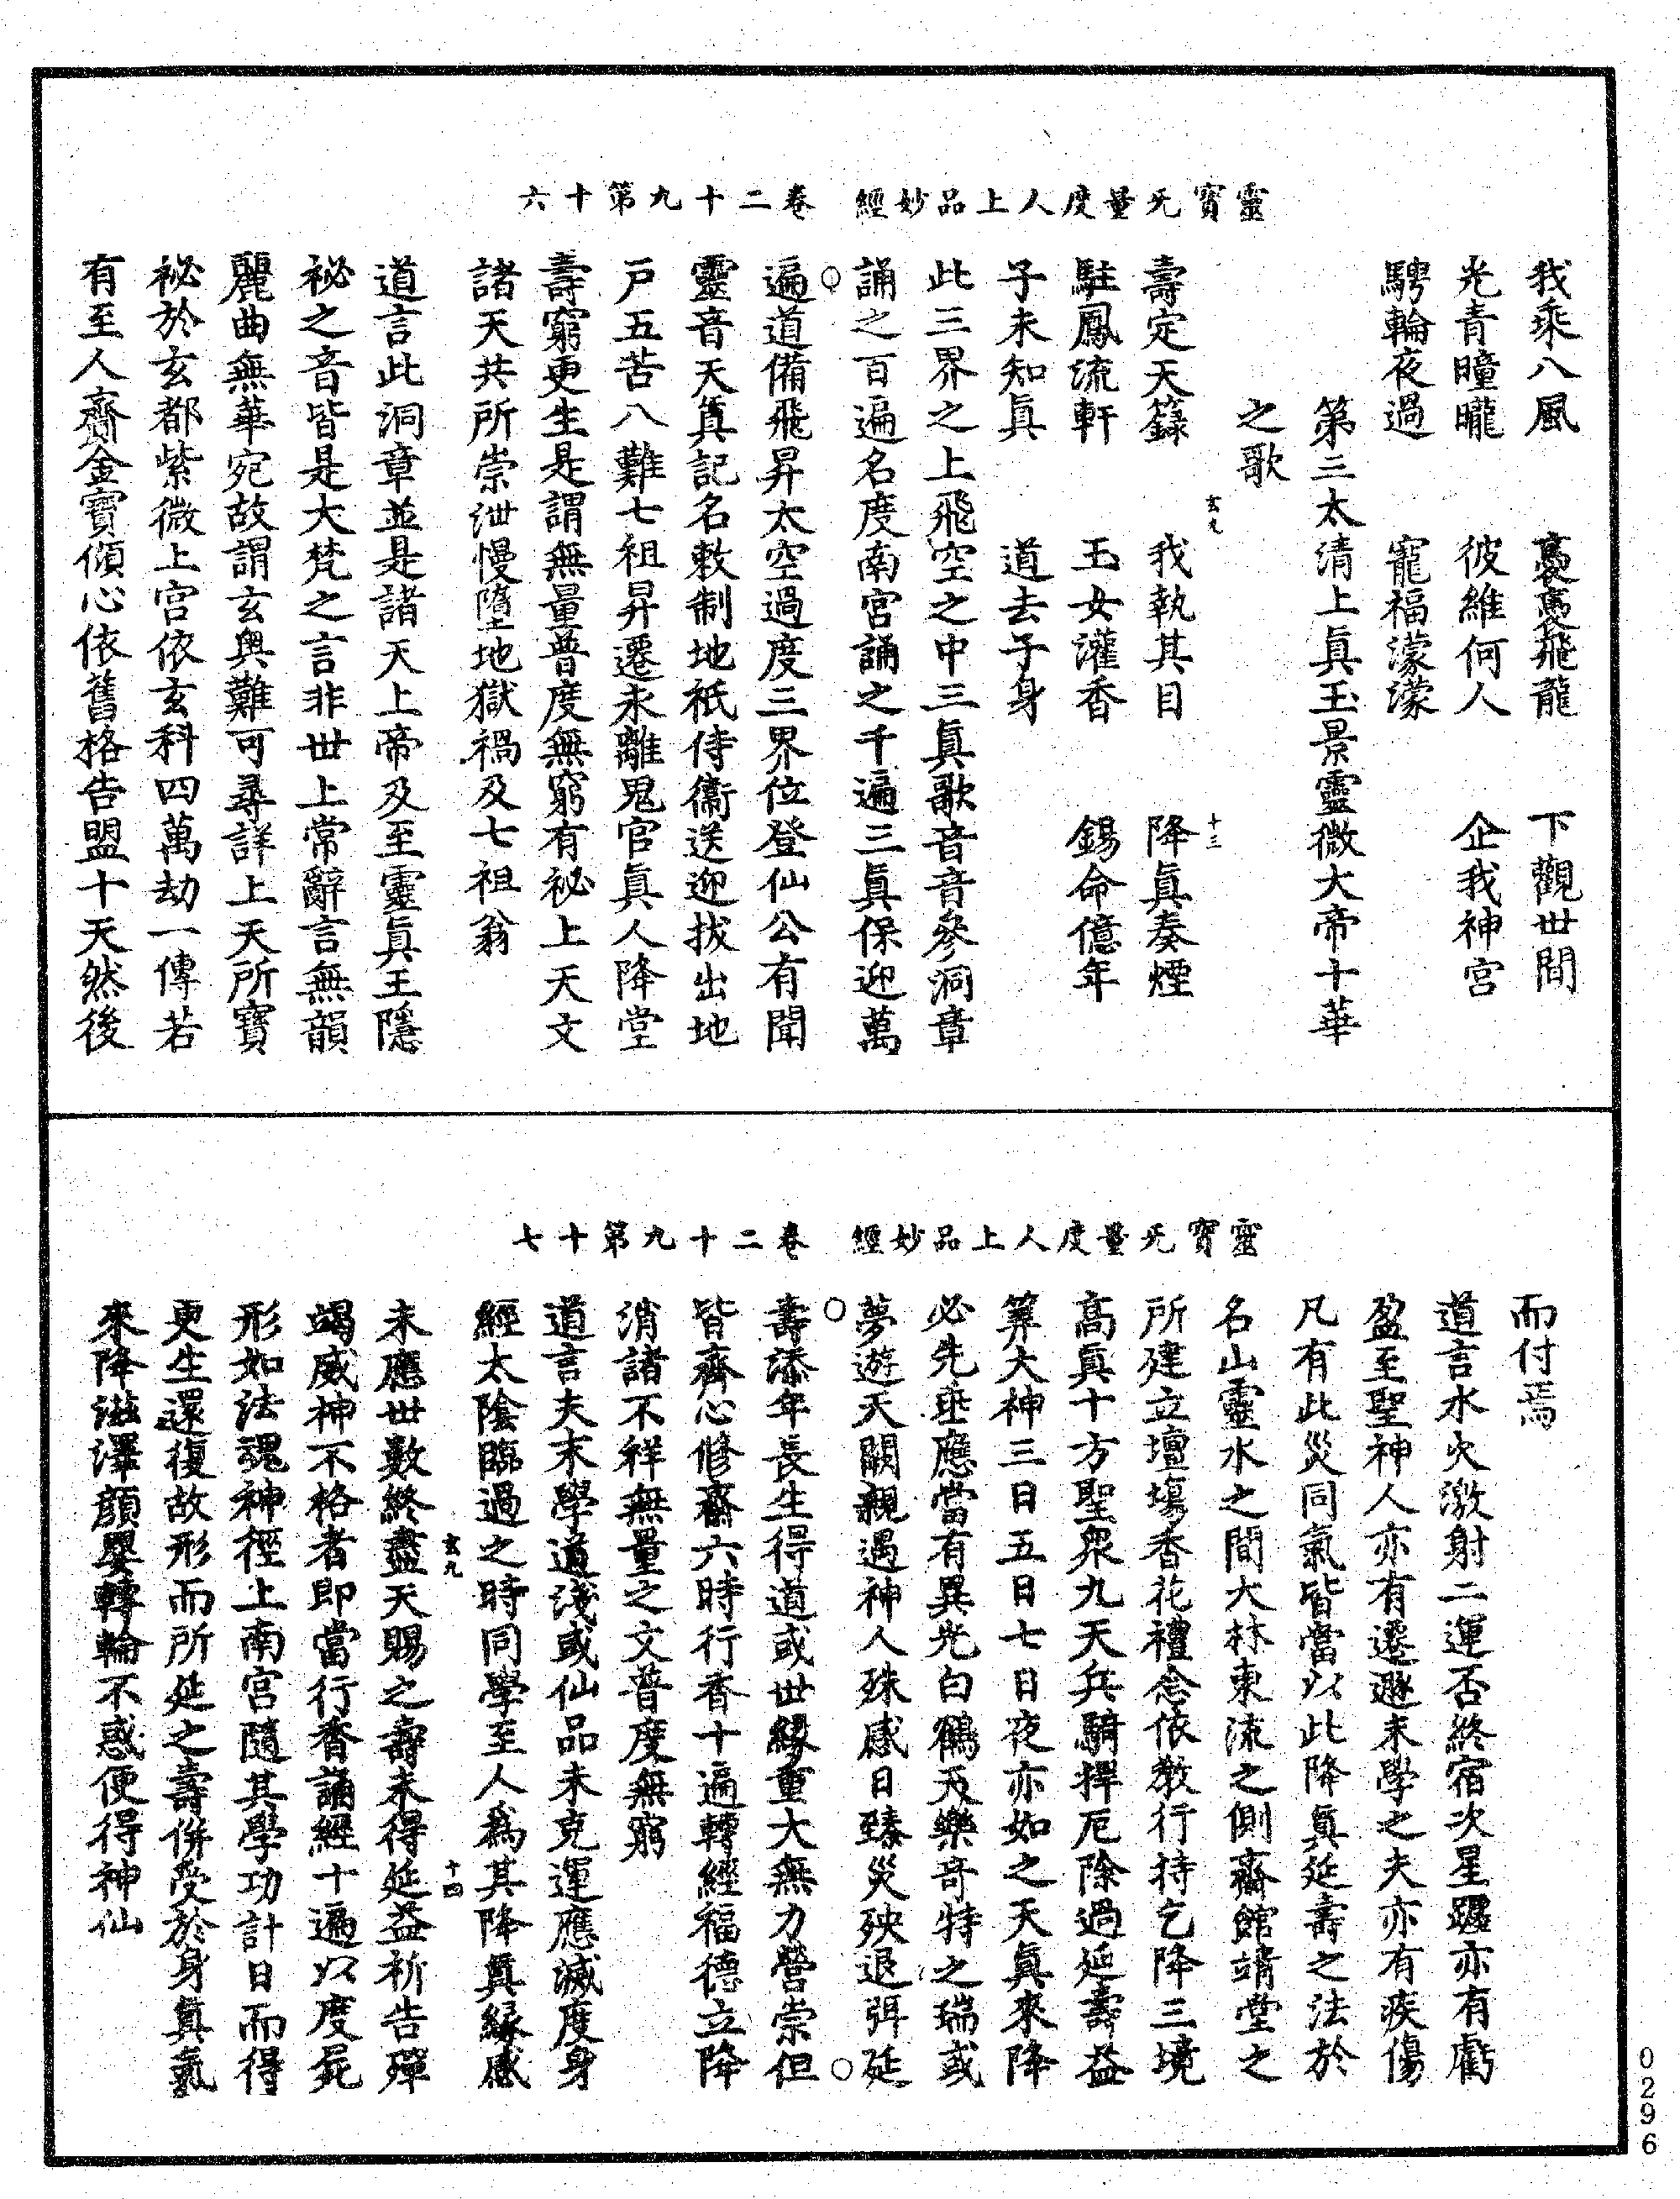 靈寶无量度人上品妙經　卷二十九第十六
我乘八風　褰褰飛龍　下觀世間
光青曈曨　彼維何人　企我神宮
騁輪夜過　寵福濛濛
第三太清上真玉景靈微大帝十華
之歌
玄九　十三
壽定天籙　我執其目　降真奏煙
駐鳳流軒　玉女灌香　錫命億年
子未知真　道去子身
此三界之上飛空之中三真歌音音參洞章
誦之百遍名度南宮誦之千遍三真保迎萬
遍道備飛昇太空過度三界位登仙公有聞
靈音天真記名敕制地祇侍衛送迎拔出地
戶五苦八難七祖昇遷永離鬼官真人降堂
壽窮更生是謂無量普度無窮有祕上天文
諸天共所崇泄慢墮地獄禍及七祖翁
道言此洞章並是諸天上帝及至靈真王隱
祕之音皆是大梵之言非世上常辭言無韻
麗曲無華宛故謂玄奧難可尋詳上天所寶
祕於玄都紫微上宮依玄科四萬劫一傳若
有至人齎金寶傾心依舊格告盟十天然後
靈寶无量度人上品妙經　卷二十九第十七
而付焉
道言水火激射二運否終宿次星躔亦有虧
盈至聖神人亦有遷遯末學之夫亦有疾傷
凡有此災同氣皆當以此降真延壽之法於
名山靈水之間大林東流之側齋館靖堂之
所建立壇場香花禮念依教行持乞降三境
高真十方聖眾九天兵騎捍厄除過延壽益
筭大神三日五日七日夜亦如之天真來降
必先垂應當有異光白鶴天樂奇特之瑞或
夢遊天闕親遇神人殊感日臻災殃退弭延
壽添年長生得道或世緣重大無力營崇但
皆齊心修齋六時行香十遍轉經福德立降
消諸不祥無量之文普度無窮
道言夫末學道淺或仙品未克運應滅度身
經太陰臨過之時同學至人為其降真緣感
玄九　十四
未應世數終盡天賜之壽未得延益祈告殫
竭威神不格者即當行香誦經十遍以度屍
形如法魂神徑上南宮隨其學功計日而得
更生還復故形而所延之壽併受於身真氣
來降滋澤顏嬰轉輪不惑便得神仙
0296